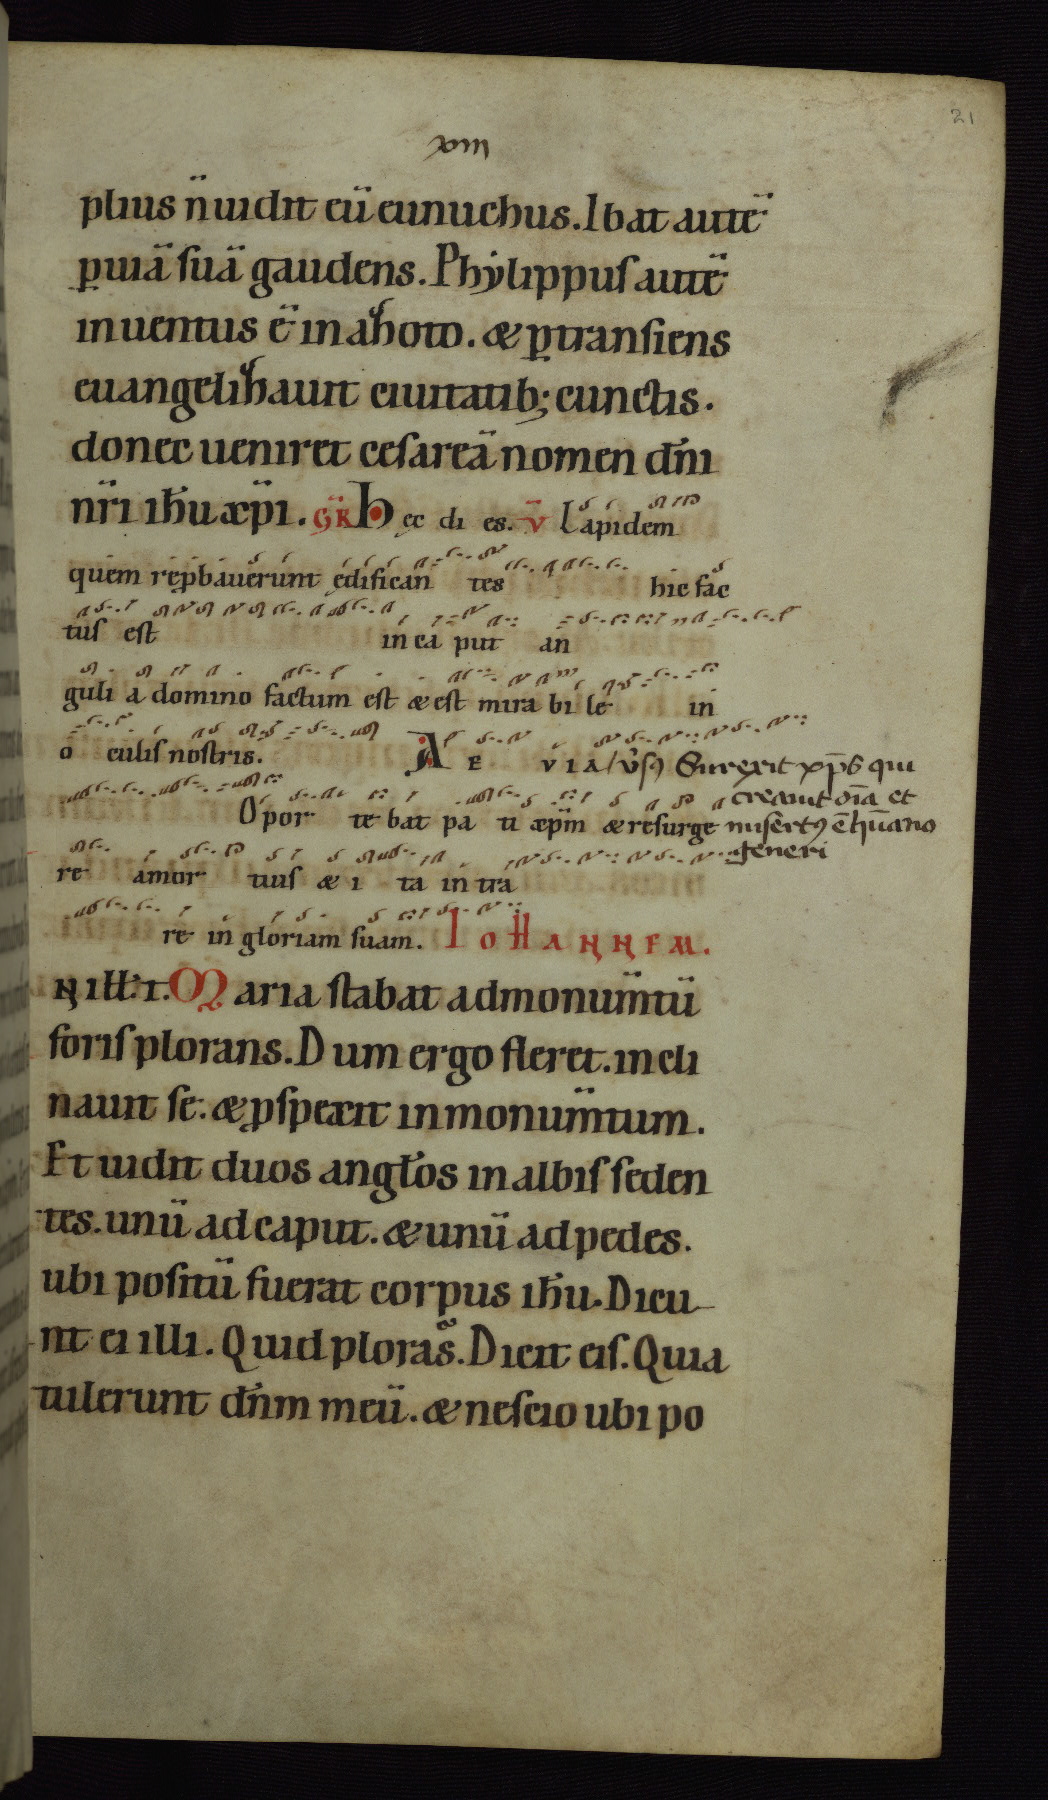 21
xiii
plius n̄ uidit eū eunuchus. Ibat autē
ꝑ uiā suā gaudens. Phylippus autē
inuentus ē in azoto. & ꝑtransiens
euangelizauit ciuitatib; cunctis.
donec ueniret cesareā nomen dn̄i
nr̄i ih̄u xp̄i. GR̄ Hec di es. V̄ Lapidem
quem reꝓbauerunt edifican tes hic fac
tus est in ca put an
guli a domino factum est & est mira bi le in
o culis nostris. A E VIA / v̓sꝰ Surrexit xp̄s qui
creauit oīa et
Opor te bat pa ti xp̄m & resurge misertꝰ ē hūano
generi
re amor tuis & i ta in tra
re in gloriam suam. IOHANNEM.
N ill̄. T. Maria stabat ad monum̄tū
foris plorans. Dum ergo fleret. incli
nauit se. & ꝓspexit in monum̄tum.
Et uidit duos angl̄os in albis seden
tes. unū ad caput. & unū ad pedes.
ubi positū fuerat corpus ih̄u. Dicu
nt ei illi. Quid ploras. Dicit eis. Quia
tulerunt dn̄m meū. & nescio ubi po